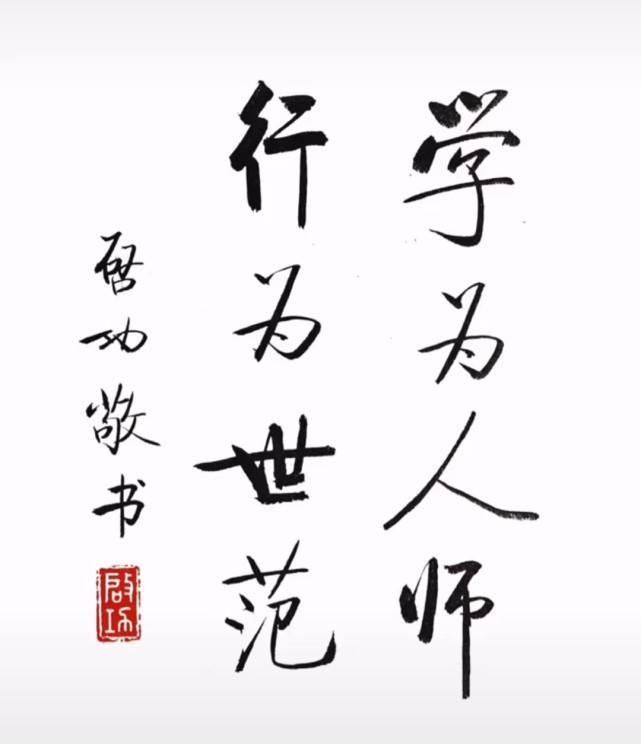 学为人师
行为世范
启功敬书
启功